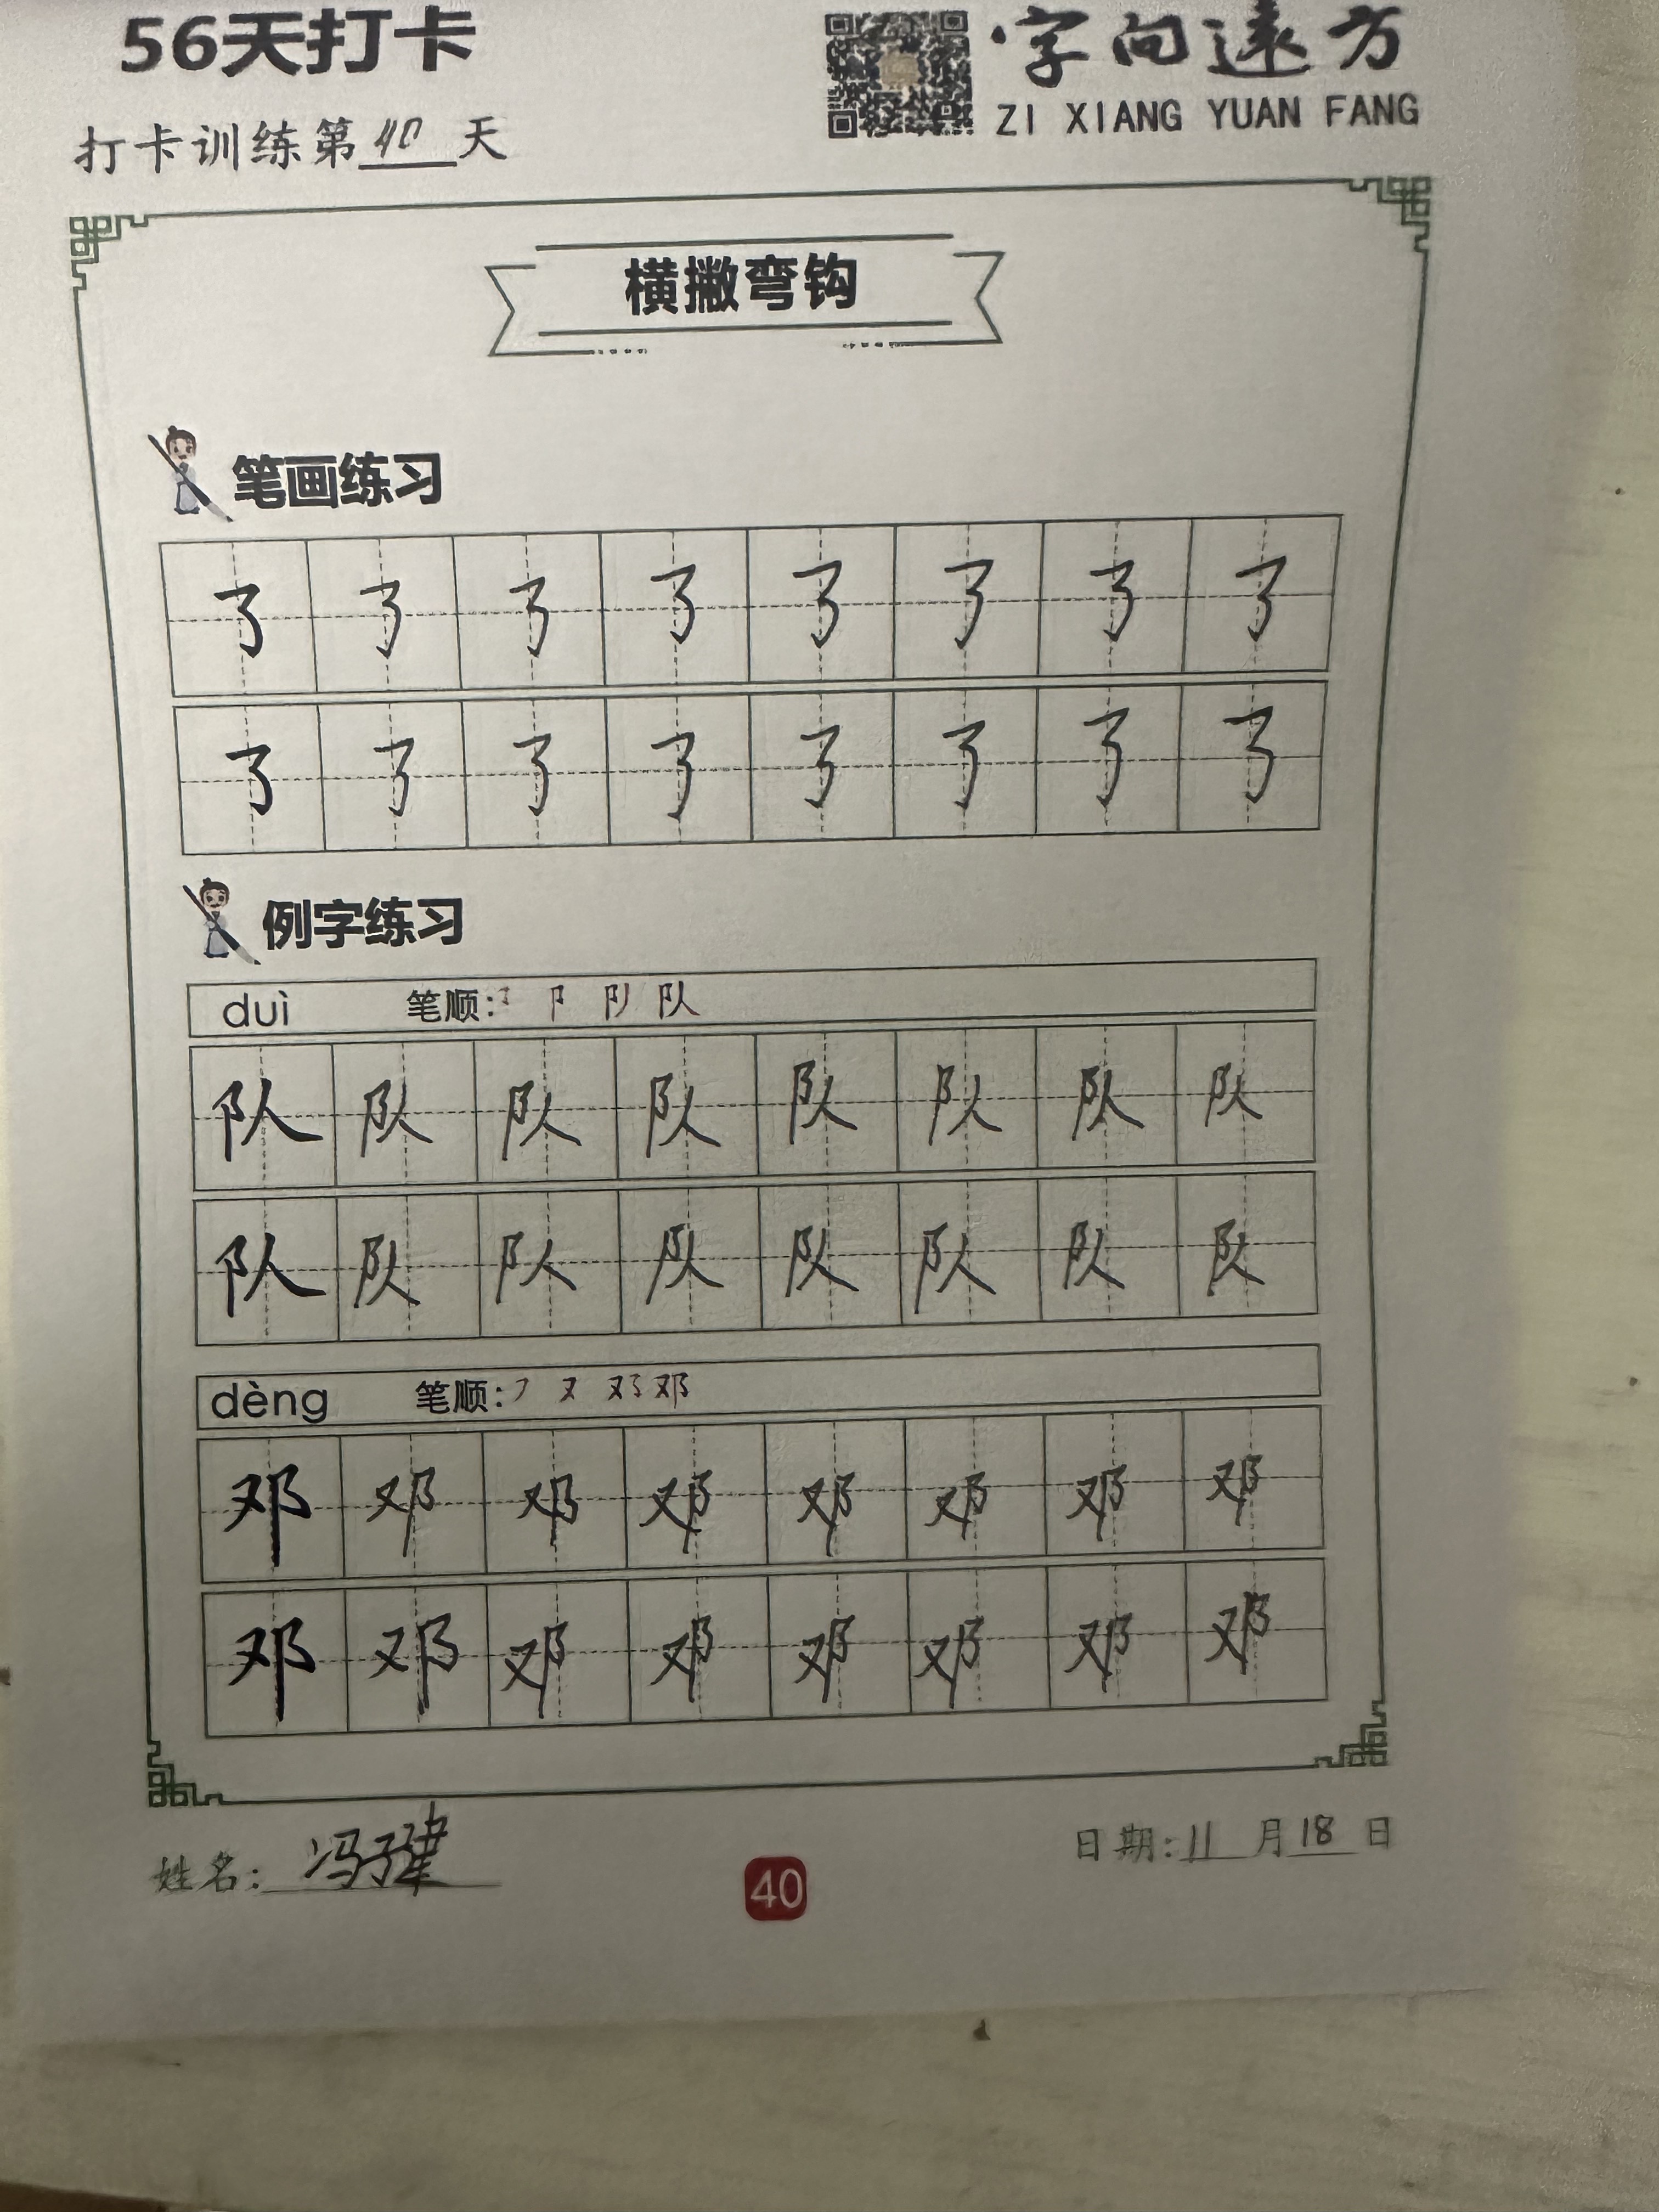 56天打卡
字向远方
ZI XIANG YUAN FANG
打卡训练第40天
横撇弯钩
笔画练习
㇌ ㇌ ㇌ ㇌ ㇌ ㇌ ㇌ ㇌
㇌ ㇌ ㇌ ㇌ ㇌ ㇌ ㇌ ㇌
例字练习
duì 笔顺: ㇌ 阝 队
队 队 队 队 队 队 队 队
队 队 队 队 队 队 队 队
dèng 笔顺: ㇇ 又 邓
邓 邓 邓 邓 邓 邓 邓 邓
邓 邓 邓 邓 邓 邓 邓 邓
姓名: 冯子
日期: 11月18日
40